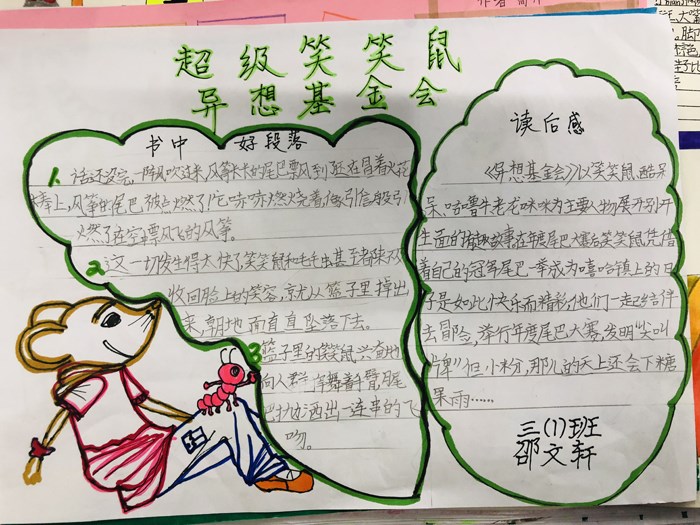 超级笑笑鼠
异想基金会
书中 好段落
1. 话还没完,一阵风吹过来,风筝长长的尾巴飘风到,延在冒着火花
棒上,风筝的尾巴被点燃了,它哧哧燃烧着,像引信般引
燃了在空飘风飞的风筝。
2 这一切发生得太快了,笑笑鼠和毛毛虫甚至都来不
收回脸上的笑容,就从篮子里掉出
来,朝地面直直坠落下去。
3 篮子里的笑笑鼠兴奋地
向人群挥舞着手臂,尾
巴也洒出一连串的飞
吻。
读后感
《异想基金会》以笑笑鼠、酷呆
呆、咕噜牛、老龙咪咪为主要人物展开别开
生面的有趣故事,在年度尾巴大赛后,笑笑鼠凭借
着自己的冠军尾巴一举成为嘻哈镇上的
是如此快乐而精彩,他们一起结伴
去冒险,举行年度尾巴大赛,发明“尖叫
牌”但小粉,那儿的天上还会下糖
果雨……
三(1)班
邵文轩
作者